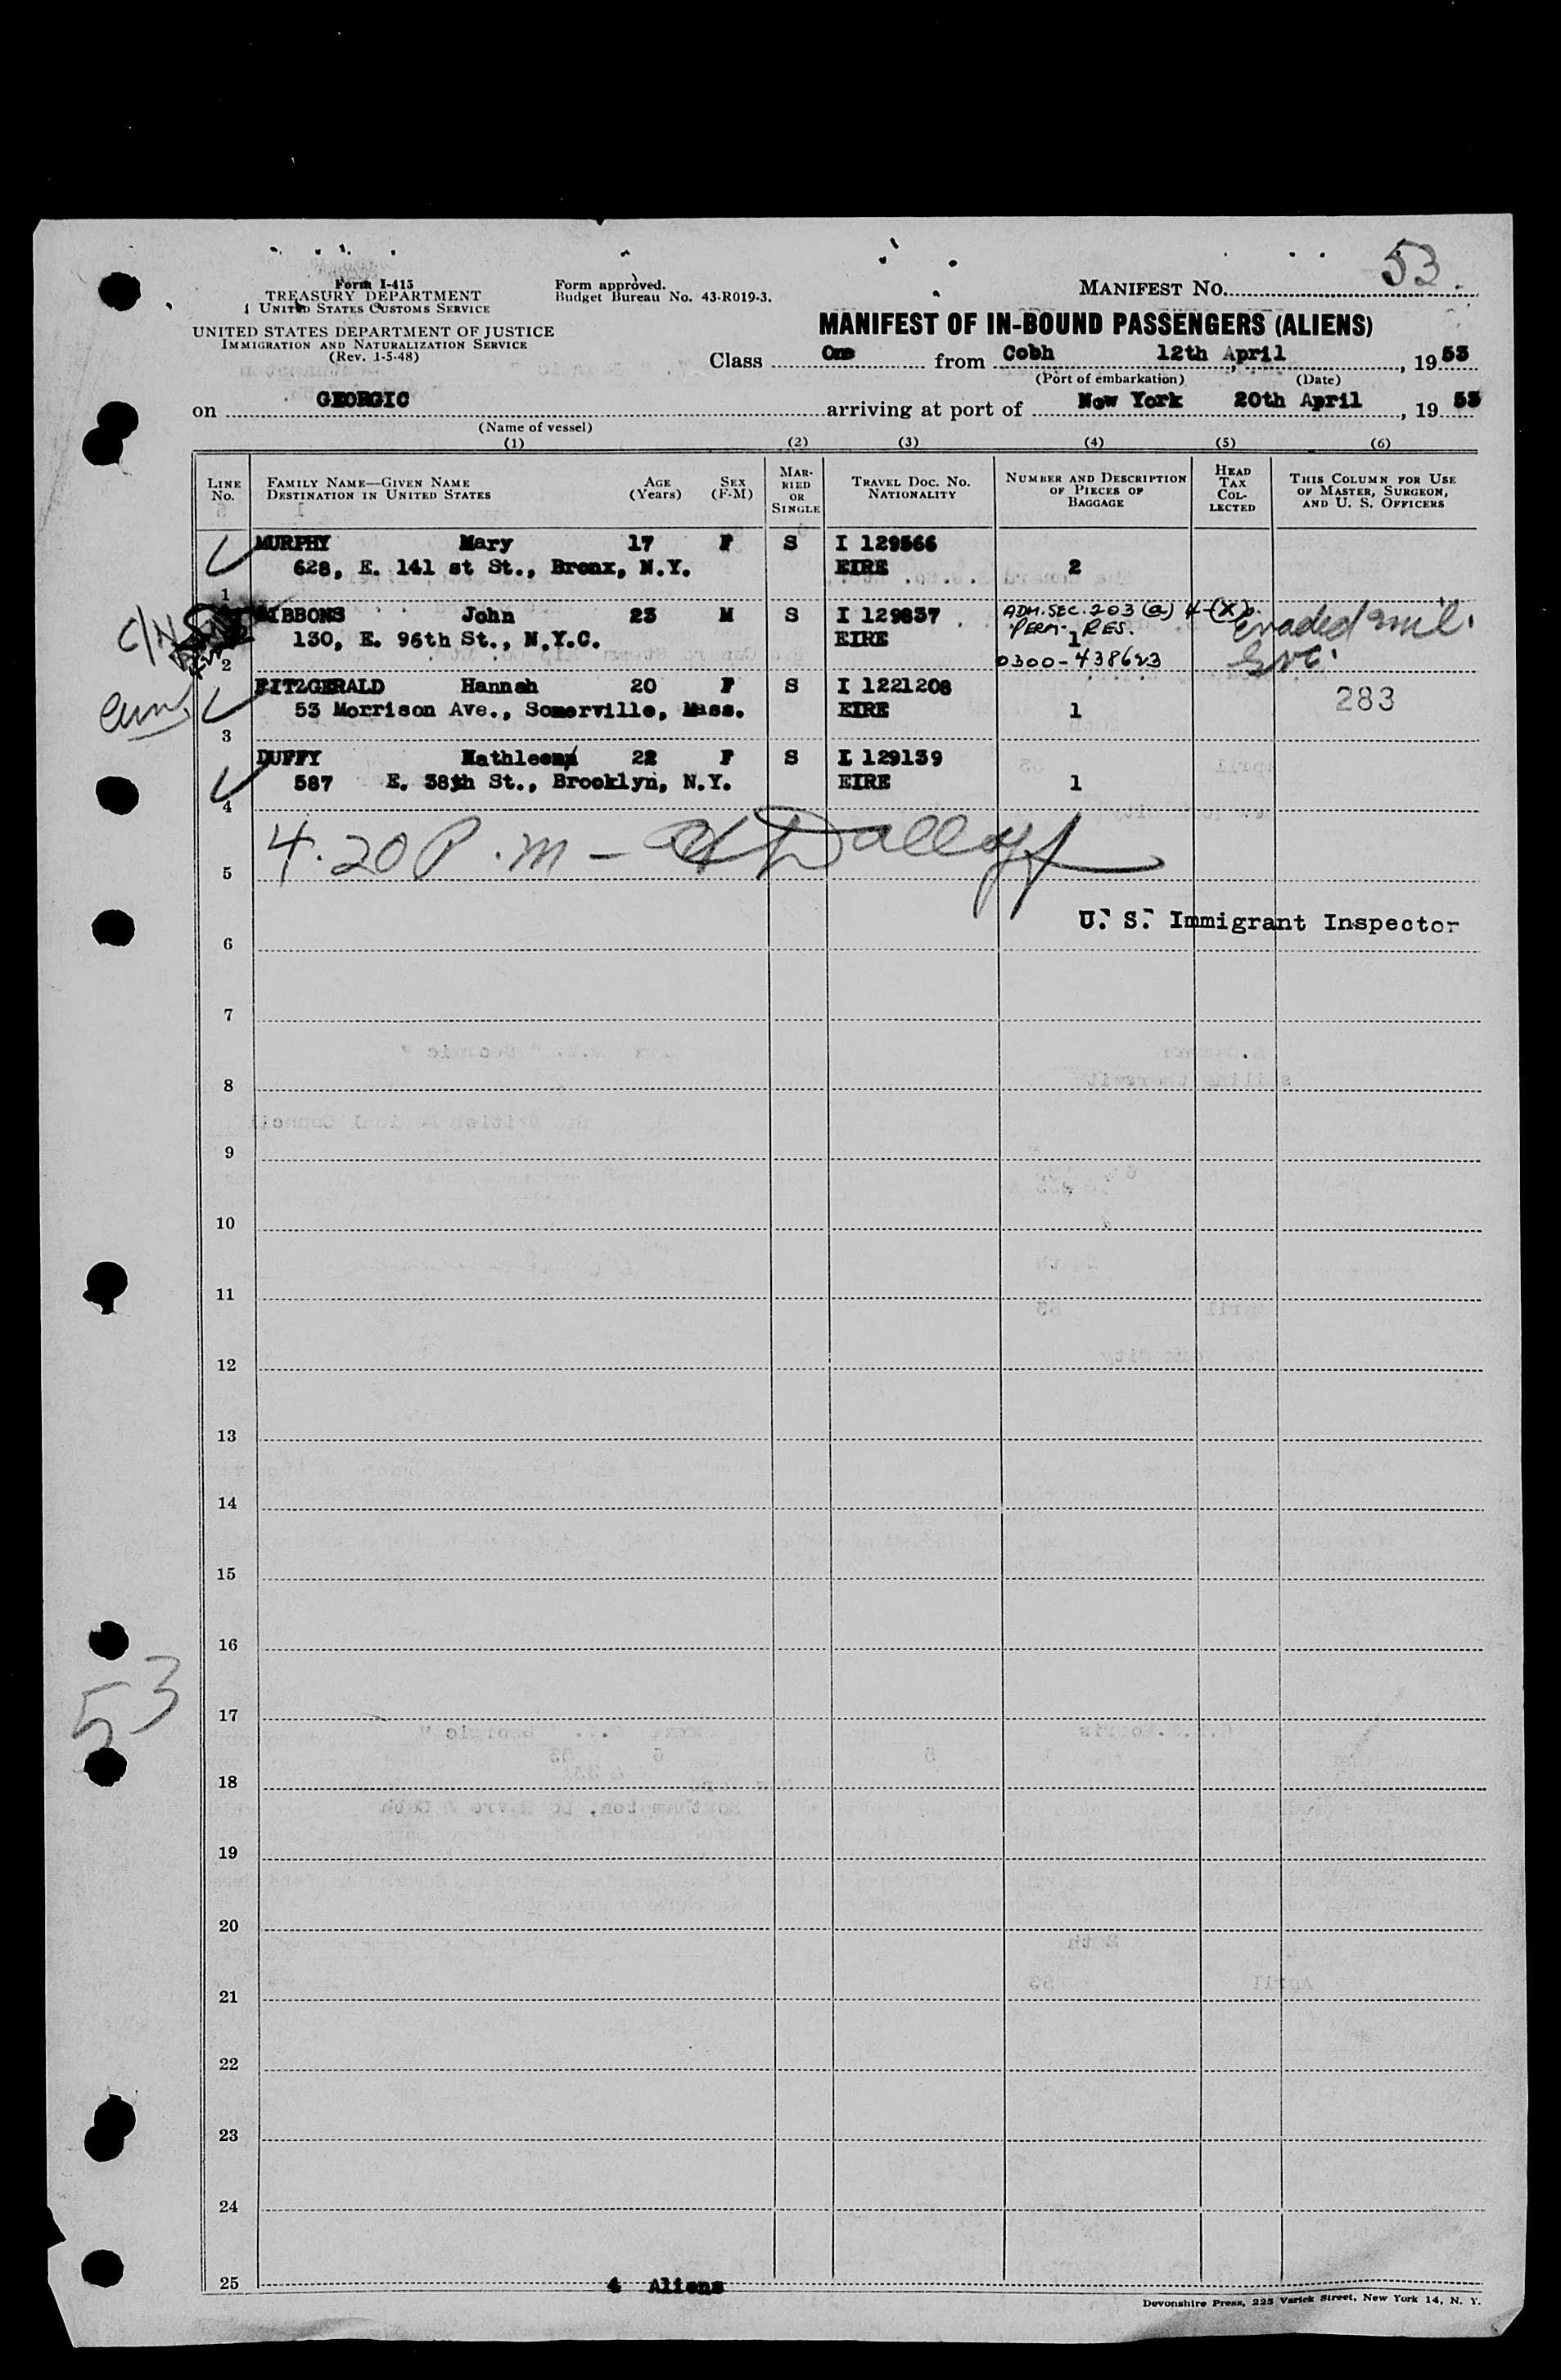 53
Form I-415
TREASURY DEPARTMENT
UNITED STATES CUSTOMS SERVICE
UNITED STATES DEPARTMENT OF JUSTICE
IMMIGRATION AND NATURALIZATION SERVICE
(Rev. 1-5-48)
Form approved.
Budget Bureau No. 43-R019-3.
MANIFEST NO.
MANIFEST OF IN-BOUND PASSENGERS (ALIENS)
Class One from Cobh 12th April, 1953
(Port of embarkation) (Date)
on GEORGIC arriving at port of New York 20th April, 1953
(Name of vessel)
(1) (2) (3) (4) (5) (6)
LINE NO. FAMILY NAME—GIVEN NAME DESTINATION IN UNITED STATES AGE (Years) SEX (F-M) MARRIED OR SINGLE TRAVEL DOC. NO. NATIONALITY NUMBER AND DESCRIPTION OF PIECES OF BAGGAGE HEAD TAX COLLECTED THIS COLUMN FOR USE OF MASTER, SURGEON, AND U. S. OFFICERS
MURPHY Mary 17 F S I 129566
628, E. 141 st St., Bronx, N.Y. EIRE 2
1
GIBBONS John 23 M S I 129837 ADM. SEC. 203 (a) 4-(X).
PERM. RES. Evaded mil.
130, E. 96th St., N.Y.C. EIRE 1 Svc.
2 0300-438623
FITZGERALD Hannah 20 F S I 1221208 283
53 Morrison Ave., Somerville, Mass. EIRE 1
3
DUFFY Kathleen 22 F S I 129139
587 E. 38th St., Brooklyn, N.Y. EIRE 1
4
4.20 P.m —
5
U. S. Immigrant Inspector
6
7
8
9
10
11
12
13
14
15
16
53
17
18
19
20
21
22
23
24
25 4 Aliens
Devonshire Press, 225 Varick Street, New York 14, N. Y.